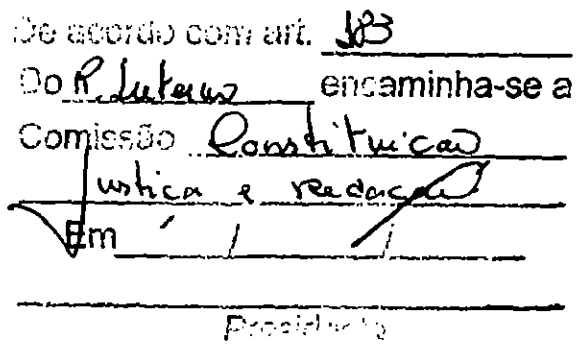 De acordo com art. 183
Do R. Interno encaminha-se a
Comissão Constituicao
Justica e redacao
Em / /
Presidente